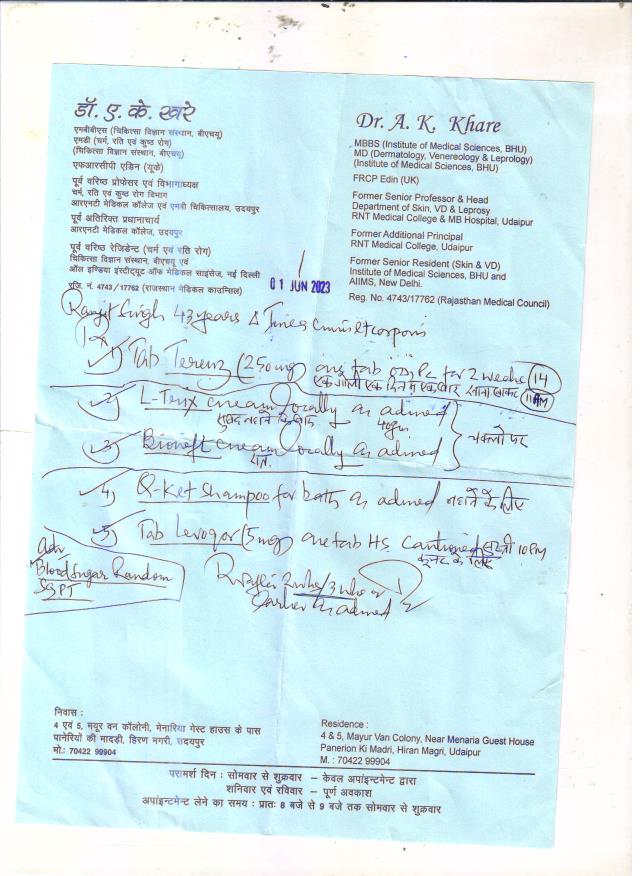 डॉ. ए. के. खरे
एमबीबीएस (चिकित्सा विज्ञान संस्थान, बीएचयू)
एमडी (चर्म, रति एवं कुष्ठ रोग)
(चिकित्सा विज्ञान संस्थान, बीएचयू)
एफआरसीपी एडिन (यूके)
पूर्व वरिष्ठ प्रोफेसर एवं विभागाध्यक्ष
चर्म, रति एवं कुष्ठ रोग विभाग
आरएनटी मेडिकल कॉलेज एवं एमबी चिकित्सालय, उदयपुर
पूर्व अतिरिक्त प्रधानाचार्य
आरएनटी मेडिकल कॉलेज, उदयपुर
पूर्व वरिष्ठ रेजिडेन्ट (चर्म एवं रति रोग)
चिकित्सा विज्ञान संस्थान, बीएचयू एवं
ऑल इण्डिया इंस्टीट्यूट ऑफ मेडिकल साइंसेज, नई दिल्ली
रजि. नं. 4743/17762 (राजस्थान मेडिकल काउन्सिल)
Dr. A. K. Khare
MBBS (Institute of Medical Sciences, BHU)
MD (Dermatology, Venereology & Leprology)
(Institute of Medical Sciences, BHU)
FRCP Edin (UK)
Former Senior Professor & Head
Department of Skin, VD & Leprosy
RNT Medical College & MB Hospital, Udaipur
Former Additional Principal
RNT Medical College, Udaipur
Former Senior Resident (Skin & VD)
Institute of Medical Sciences, BHU and
AIIMS, New Delhi.
Reg. No. 4743/17762 (Rajasthan Medical Council)
01 JUN 2023
Ranjit Singh 43 years Δ Tinea
Rx
1) Tab (250mg) one tab PC for 2 weeks 14
एक गोली एक दिन में एक बार खाना खाकर 11 AM
2) cream locally as advised
40gm
3) cream locally as advised
4) Q-Ket Shampoo for bath as advised नहाने के लिए
5) Tab (5mg) one tab HS रात्री 10PM
Adv
Blood Sugar Random
SGPT
Earlier as advised
निवास :
4 एवं 5, मयूर वन कॉलोनी, मेनारिया गेस्ट हाउस के पास
पानेरियों की मादड़ी, हिरण मगरी, उदयपुर
मो.: 70422 99904
Residence :
4 & 5, Mayur Van Colony, Near Menaria Guest House
Panerion Ki Madri, Hiran Magri, Udaipur
M. : 70422 99904
परामर्श दिन : सोमवार से शुक्रवार – केवल अपांइन्टमेन्ट द्वारा
शनिवार एवं रविवार – पूर्ण अवकाश
अपांइन्टमेन्ट लेने का समय : प्रातः 8 बजे से 9 बजे तक सोमवार से शुक्रवार